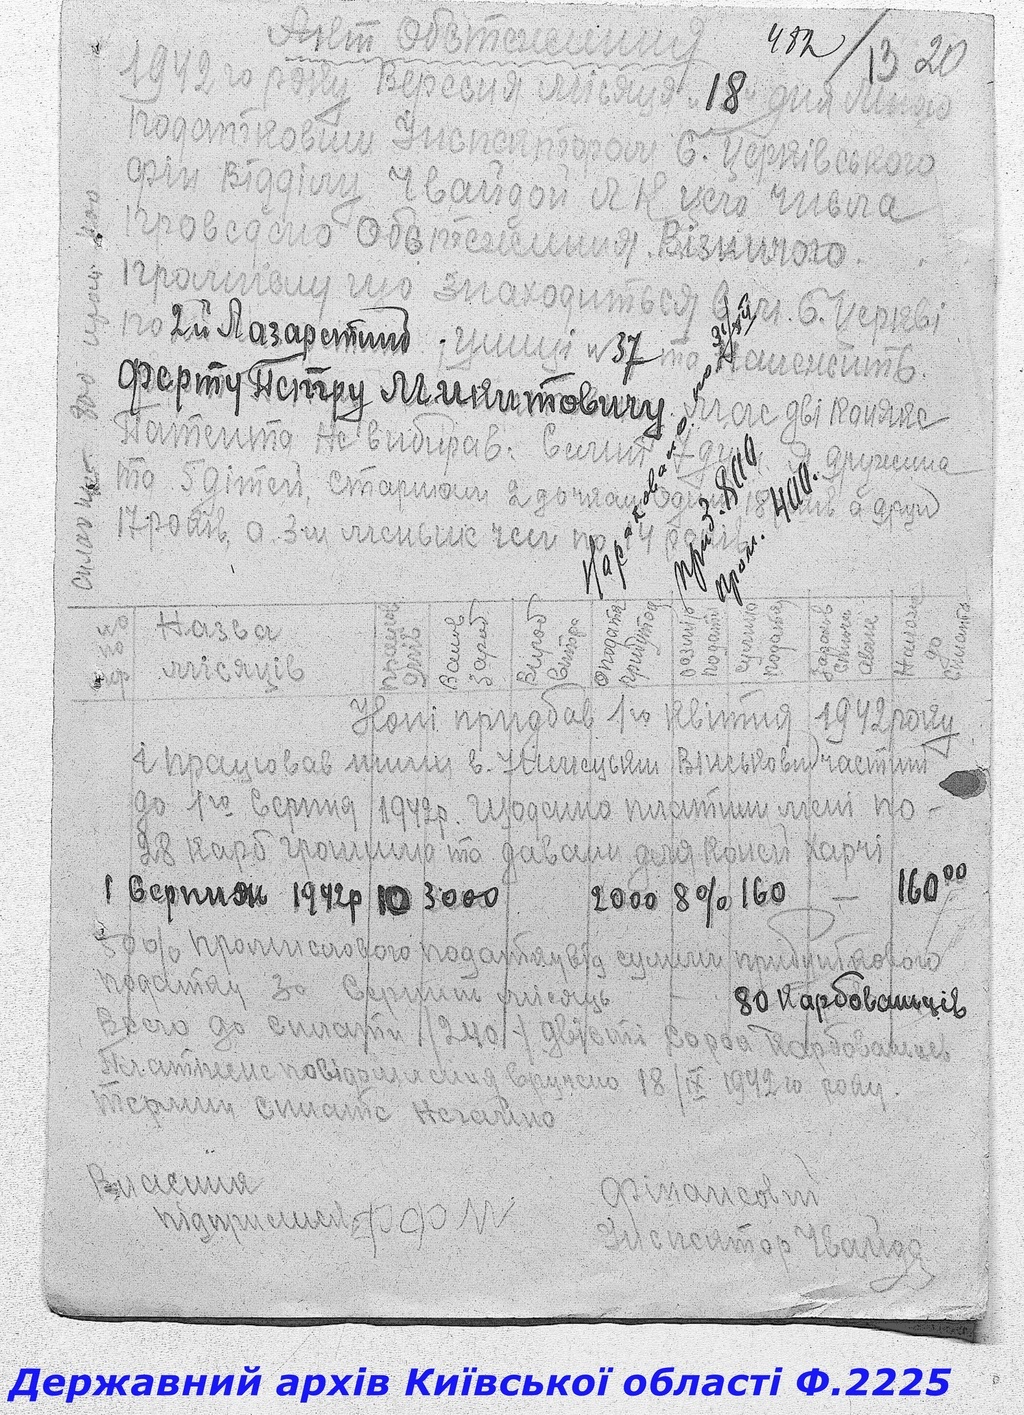 Акт Обстеження 482/13 20
1942 го року Вересня місяця 18 дня Мною
Податковим Інспектором Б. Церківського
фін Відділу Чвайдой А К цего числа
Проведено Обстеження Візничого
Промислу що Знаходиться в м. Б. Церкві
по 2й Лазаретний улиці № 37 та Належить
Ферту Петру Микитовичу. Має дві коняке
Патента Не вибирав. Семия 7 душ, Я дружина
та 5 дітей, старшам 2 дочкам одни 18 років а други
17 років, а 3-м меньше чем по 14 років
Нараховано по
приб. 800
пром. 400.
Сплаче 800 пром 400
Назва місяців
Розмір податк
Належ до сплати
Коні придбав 1го Квітня 1942 року
і працював ними в Німецький Військовий частині
до 1го Серпня 1942р. Щоденно платили мені по-
28 карб грошима та давали для Коней харчі
1 Серпень 1942р 10 3000 2000 8% 160 — 160⁰⁰
50% промислового податку від сумми прибуткового
податку За Серпень місяць — 80 Карбованців
Всего до сплати /240/ двісті сорок карбованцев
Платежне повідомлення вручено 18/IX 1942 го року.
Термин сплате Негайно
Власник Фінансовий
підприємся Инспектор Чвайда
Державний архів Київської області Ф.2225